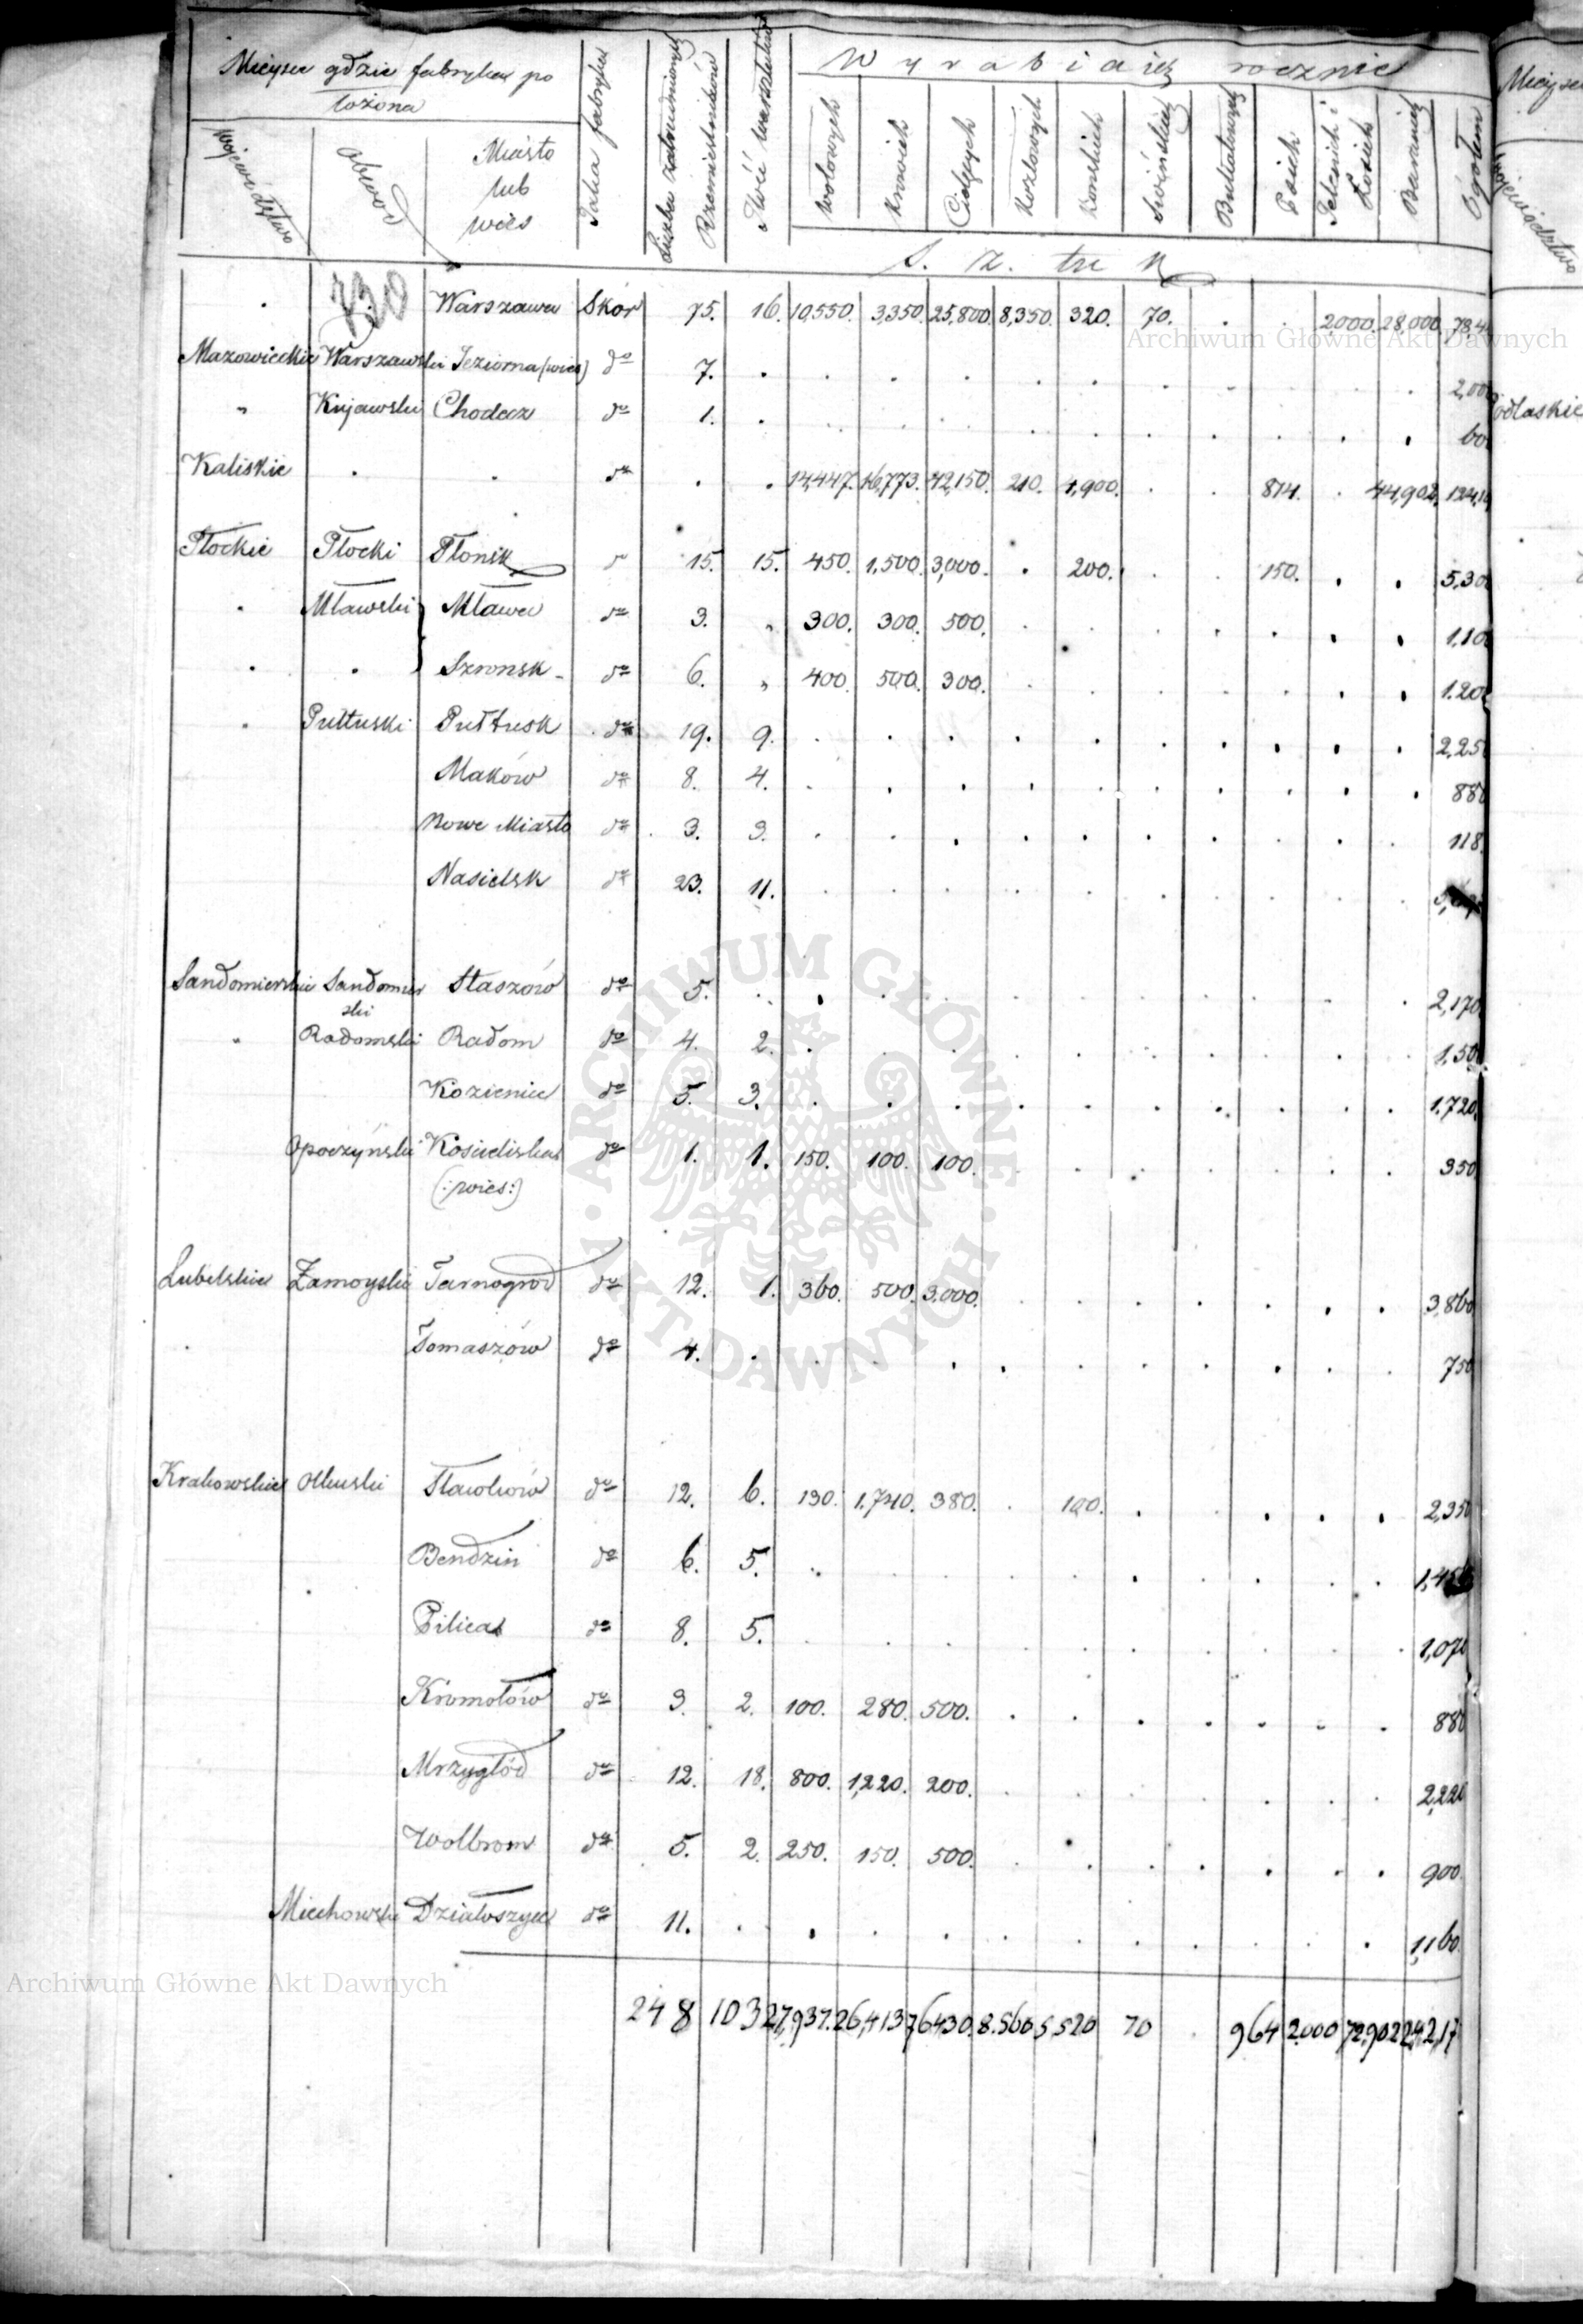 Mieysce gdzie fabryka po
łożona
Województwo
Obwód
Miasto
lub
wieś
Jaka fabryka
Liczba zatrudnionych
Rzemieślników
Ilość warsztatów
Wyrabia się rocznie
Wołowych
Krowich
Cielęcych
Kozłowych
Końskich
Świńskich
Psich
Jelenich i
Łosich
Baranich
Ogółem
Sztuk
730
Warszawa Skór 75. 16. 10,550. 3,350. 25,800. 8,350. 320. 70. . . 2,000. 28,000. 78,4
Mazowieckie Warszawski Jeziorna (wieś) do 7. . . . . . . . 2,000
" Kujawski Chodecz do 1. . . . . . . . . . . . 60
Kaliskie . . do . . 14,447. 16,773. 42,150. 210. 4,900. . . 814. . 44,902. 124,1
Płockie Płocki Płonsk 15. 15. 450. 1,500. 3,000. . 200. . . 150. . . 5,30
. Mławski Mława do 3. " 300. 300. 500. . . . . . . . 1,10
. . Szronsk - do 6. " 400. 500. 300. . . . . . . . 1.20
. Pułtuski Pułtusk do 19. 9. . . . . . . . . . . 2,25
Maków do 8. 4. . . . . . . . . . . 880
Nowe Miasto do 3. 3. . . . . . . . . . . 118.
Nasielsk do 23. 11. . . . . . . . . . .
Sandomierskie Sandomir
ski
Staszów do 5. . . . . . . . . . . . 2,170
" Radomski Radom do 4. 2. . . . . . . . . . . 1,50
Kozienice do 5. 3. . . . . . . . . . . 1.720
Opoczyński Kościeliska do 1. 1. 150. 100. 100. . . . . . . . 350
(:wieś:)
Lubelskie Zamoyski Tarnogrod do 12. 1. 360. 500. 3.000. . . . . . . . 3,860
. Tomaszów do 4. . . . . . . . . . . . 750
Krakowskie Olkuski Sławków do 12. 6. 130. 1.740. 380. . 100. . . . . . 2,350
Bendzin do 6. 5. . . . . . . . . . . 1,45
Pilica do 8. 5. . . . . . . . . . . 1,070
Kromołów do 3. 2. 100. 280. 500. . . . . . . . 880
Mrzygłód do 12. 18. 800. 1,220. 200. . . . . . . . 2,220
Wolbrom do 5. 2. 250. 150. 500. . . . . . . . 900
Miechowski Działoszyce do 11. . . . . . . . . . . . 1,160.
248 103 27,937. 26,413 76430. 8.560 5,520 70 . 964 2.000 72,902 242,17
Mieysce
Województwo
odlaskie
Archiwum Główne Akt Dawnych
ARCHIWUM GŁÓWNE AKT DAWNYCH
Archiwum Główne Akt Dawnych